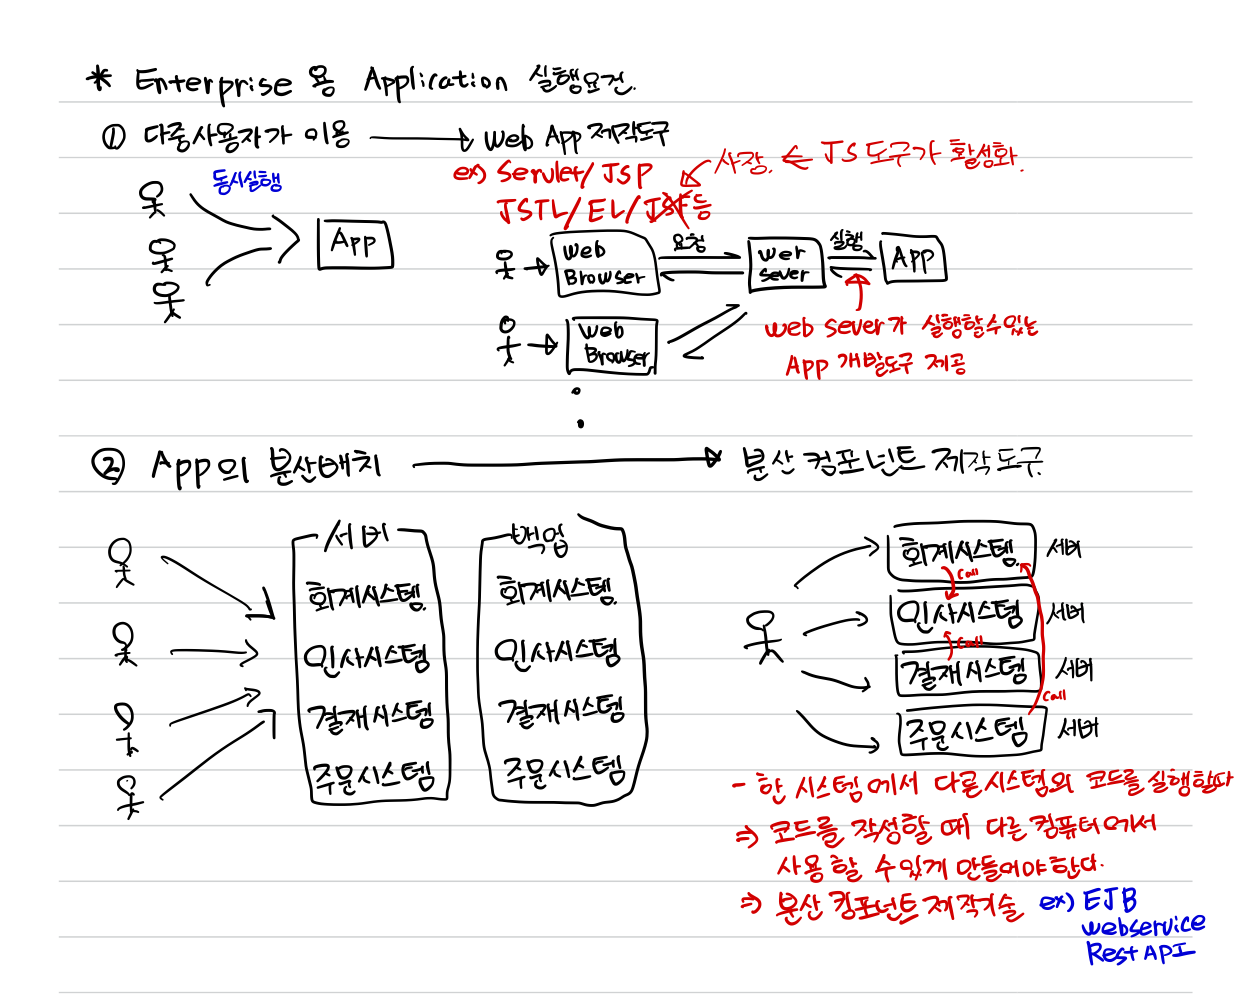 * Enterprise 용 Application 실행요건.
① 다중사용자가 이용 → Web App 제작도구
동시실행
ex) Servlet/JSP
JSTL/EL/JSF등
사장. ⇐ JS 도구가 활성화.
App
Web
Browser
요청
wer
sever
실행
App
Web
Browser
web sever가 실행할수있는
App 개발도구 제공
② App의 분산배치 → 분산 컴포넌트 제작도구
서버
회계시스템.
인사시스템
결재시스템
주문시스템
백업
회계시스템.
인사시스템
결재시스템
주문시스템
회계시스템. 서버
call
인사시스템 서버
call
결재시스템 서버
call
주문시스템 서버
- 한 시스템에서 다른시스템의 코드를 실행한다
⇒ 코드를 작성할 때 다른 컴퓨터에서
사용할 수있게 만들어야한다.
⇒ 분산 컴포넌트제작기술 ex) EJB
webservice
Rest API